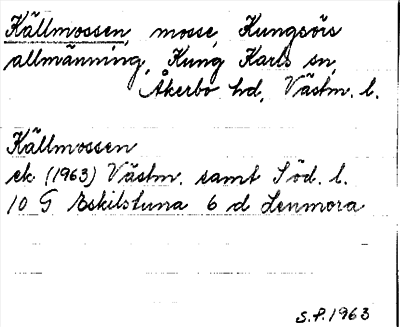 Källmossen, mosse, Kungsörs
allmänning, Kung Karls sn,
Åkerbo hd, Västm. l.
Källmossen
ek (1963) Västm. samt Söd. l.
10 G Eskilstuna 6 d Lenmora
S.P. 1963